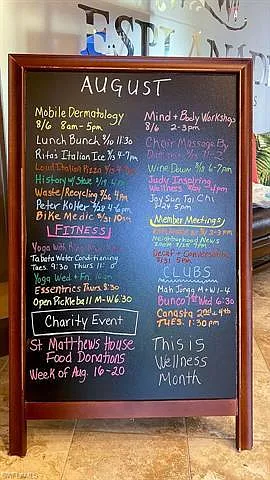 ESPLANADE
AUGUST
Mobile Dermatology
8/6 8am-5pm
Lunch Bunch 8/10 11:30
Rita's Italian Ice 4-7pm
Pizza
History w/ Steve
Waste/Recycling 8/26 4pm
Peter Kolter
Bike Medic 8/31 10am
FITNESS
Yoga
Tabata Water Conditioning
Tues. 9:30 Thurs 11:
Yoga Wed + Fri.
Essentrics Thurs 8:30
Open Pickleball M-W 6:30
Charity Event
St Matthews House
Food Donations
Week of Aug. 16-20
Mind + Body Workshop
8/6 2-3pm
Chair Massage By
Wine Down 6-7pm
Judy Inspiring
Wellness 4pm
Joy Sun Tai Chi
5pm
Member Meetings
2-3pm
Neighborhood News
Decaf + Conversation
8/31 5pm
CLUBS
Mah Jongg M+W 1-4
Bunco 1st Wed 6:30
Canasta 2nd + 4th
TUES. 1:30 pm
This is
Wellness
Month